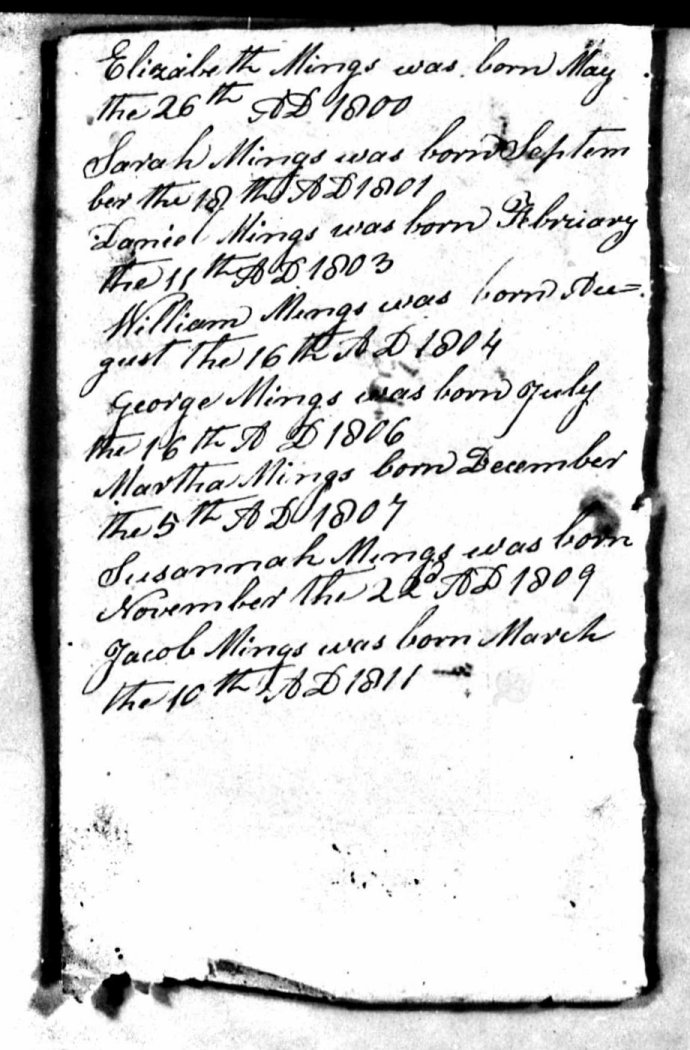 Elizabeth Mings was born May
the 26th AD 1800
Sarah Mings was born Septem
ber the 18th AD 1801
Daniel Mings was born February
the 11th AD 1803
William Mings was born Au=
gust the 16th AD 1804
George Mings was born July
the 16th AD 1806
Martha Mings born December
the 5th AD 1807
Susannah Mings was born
November the 22d AD 1809
Jacob Mings was born March
the 10th AD 1811